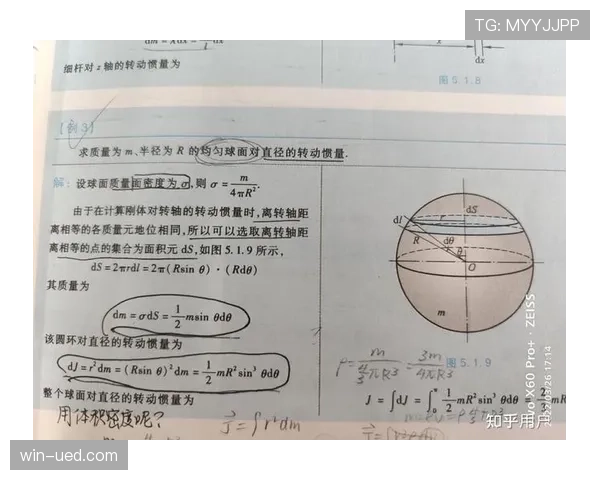 TG: MYYJJPP
dm = λdx =
细杆对 z 轴的转动惯量为
x
dx
图 5.1.8
[例 3]
求质量为 m、半径为 R 的均匀球面对直径的转动惯量.
解: 设球面质量面密度为 σ, 则 σ = m/4πR².
由于在计算刚体对转轴的转动惯量时, 离转轴距
离相等的各质量元地位相同, 所以可以选取离转轴距
离相等的点的集合为面积元 dS, 如图 5.1.9 所示,
dS = 2πrdl = 2π(Rsin θ) · (Rdθ)
其质量为
dm = σdS = 1/2 msin θdθ
该圆环对直径的转动惯量为
dJ = r²dm = (Rsin θ)²dm = 1/2 mR²sin³ θdθ
整个球面对直径的转动惯量为
dl
r
dS
R
dθ
θ
O
m
图 5.1.9
ρ = m/(4/3 πR³) = 3m/4πR³
J = ∫dJ = ∫₀^π 1/2 mR²sin³ θdθ = 2/3
用体积密度呢?
J = ∫r²dm
vivo X60 Pro+ · ZEISS
2022/03/26 17:14
知乎用户
win-ued.com